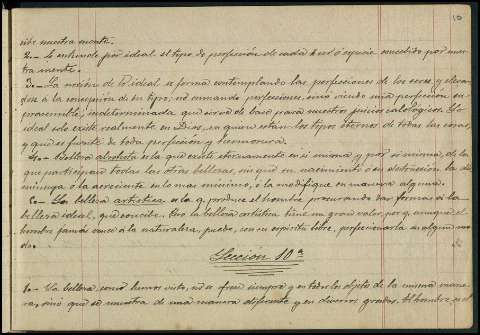 10
cibe nuestra mente.
2.- Se entiende por ideal el tipo de perfección de cada ser ó especie concebido por nues-
tra mente.
3.- La noción de lo ideal se forma contemplando las perfecciones de los seres, y eleván-
dose á la concepción de su tipo, no sumando perfecciones, sino viendo una perfección in-
presumible, indeterminada que sirve de base para nuestros juicios calológicos. Lo
ideal solo existe realmente en Dios, en quien están los tipos eternos de todas las cosas,
y que es fuente de toda perfección y hermosura.
4.- Belleza absoluta es la que existe eternamente en si misma y por si misma, de la
que participan todas las otras bellezas, sin que su nacimiento ó su destrucción la dis-
minuya ó la acreciente en lo mas mínimo, ó la modifique en manera alguna.
5.- La belleza artística es la q. produce el hombre procurando dar formas á la
belleza ideal, que concibe. Pero la belleza artística tiene un gran valor, por q. aunque el
hombre jamás vence á la naturaleza, puede, con su espíritu libre, perfeccionarla en algun mo-
do.
Lección 10ª
1.- La belleza, como hemos visto, no se ofrece siempre y en todos los objetos de la misma mane-
ra, sino que se muestra de una manera diferente y en diversos grados. Al hombre es el